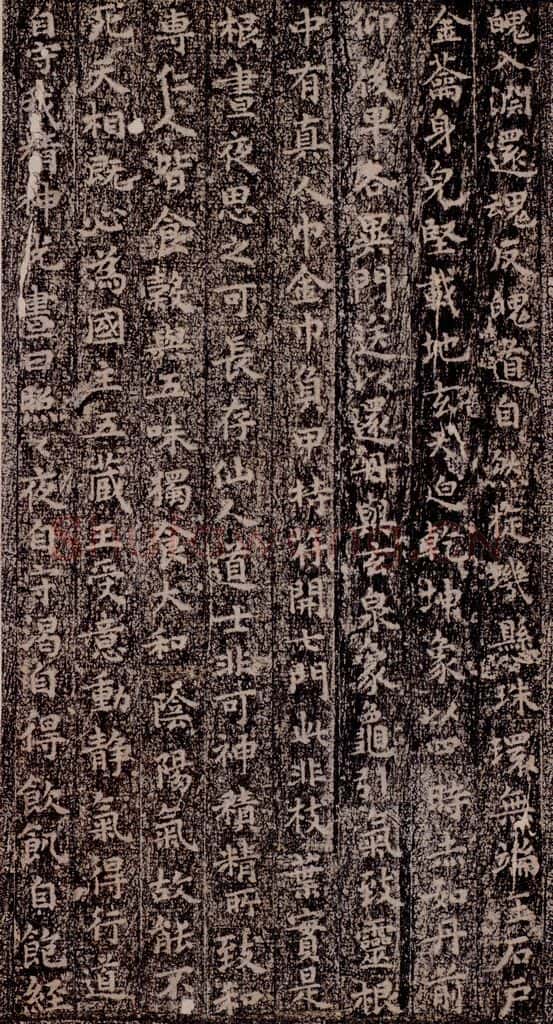 魄入淵還魂反魄道自然旋璣懸珠環無端玉石戶
金籥身皃堅載地玄天迴乾坤象以四時赤如丹前
仰後卑各異門送以還丹與玄泉象龜引氣致靈根
中有真人巾金巾負甲持符開七門此非枝葉實是
根晝夜思之可長存仙人道士非可神積精所致和
專仁人皆食穀與五味獨食大和陰陽氣故能不
死天相既心為國主五藏王受意動静氣得行道
自守我精神光晝日照照夜自守渴自得飲飢自飽經